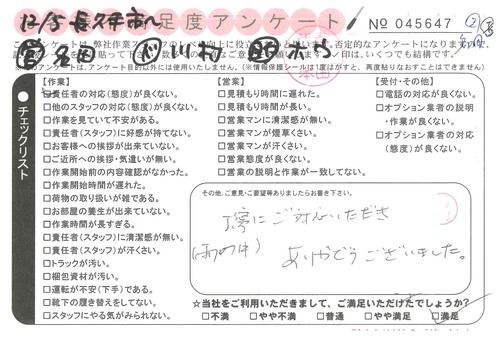 12/5 長久手市へ 足度アンケート No 045647
【作業】
□責任者の対応(態度)が良くない。
□他のスタッフの対応(態度)が良くない。
□作業を見ていて不安がある。
□責任者(スタッフ)に好感が持てない。
□お客様への挨拶が出来ていない。
□ご近所への挨拶・気遣いが無い。
□作業開始前の内容確認がなかった。
□作業開始時間が遅れた。
□荷物の取り扱いが雑である。
□お部屋の養生が出来ていない。
□作業時間が長すぎる。
□責任者(スタッフ)に清潔感が無い。
□責任者(スタッフ)が汗くさい。
□トラックが汚い。
□梱包資材が汚い。
□運転が不安(下手)である。
□靴下の履き替えをしてない。
□スタッフにやる気がみられない。
【営業】
□見積もり時間に遅れた。
□見積もり時間が長い。
□営業マンに清潔感が無い。
□営業マンが煙草くさい。
□営業マンが汗くさい。
□営業態度が良くない。
□営業の説明と作業が一致してない。
【受付・その他】
□電話の対応が良くない。
□オプション業者の説明
・作業が良くない。
□オプション業者の対応
(態度)が良くない。
チェックリスト
その他、ご意見・ご要望等ありましたらお書き下さい。
丁寧にご対応いただき
(雨の中) ありがとうございました。
☆当社をご利用いただきまして、ご満足いただけたでしょうか?
□不満 □やや不満 □普通 □やや満足 □満足